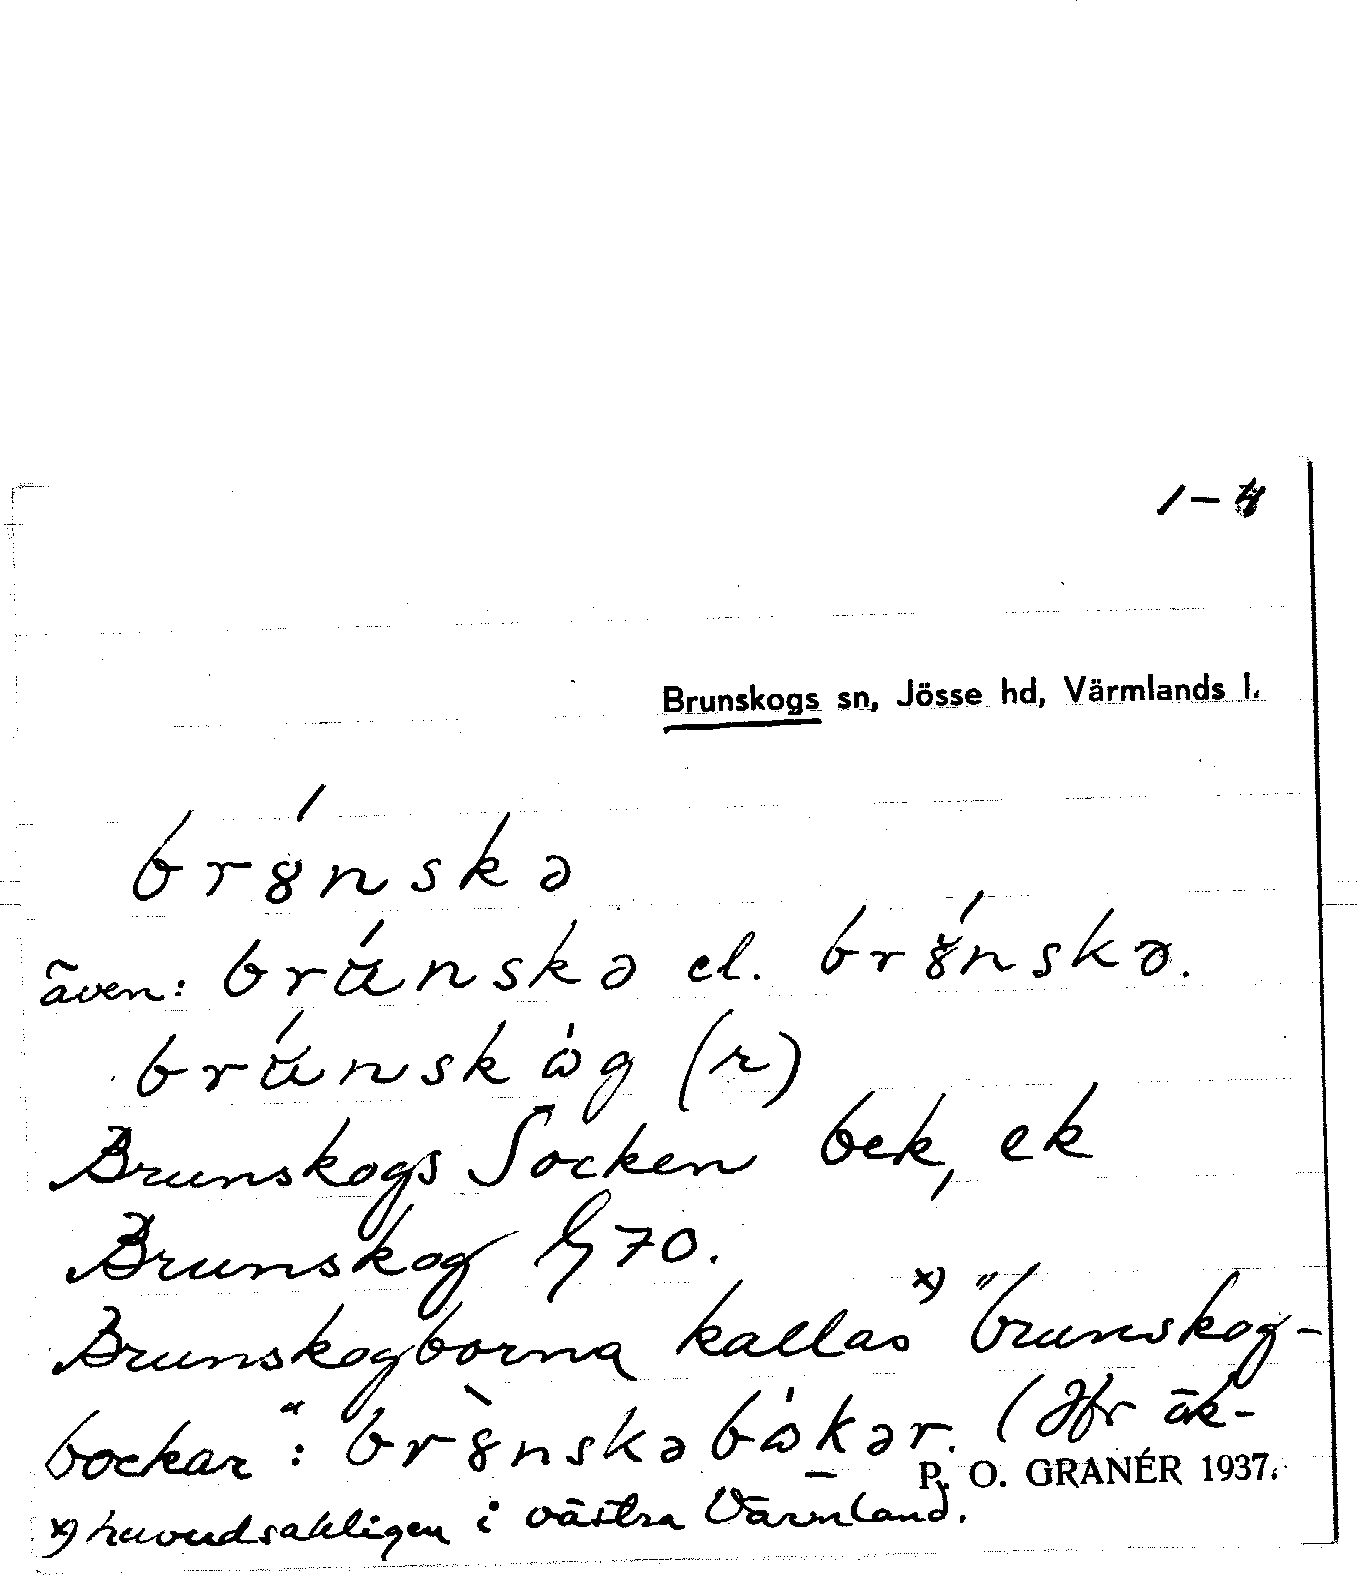 1-4
Brunskogs sn, Jösse hd, Värmlands l.
br8́nskə
även: brúnskə el. br8́nskə.
brúnskòg (r)
Brunskogs Socken bek, ek
Brunskog G 70.
Brunskogborna kallas x) "brunskog-
bockar": br8̀nskəbòkər. (Jfr åk-
P. O. GRANÉR 1937.
x) huvudsakligen i västra Värmland.